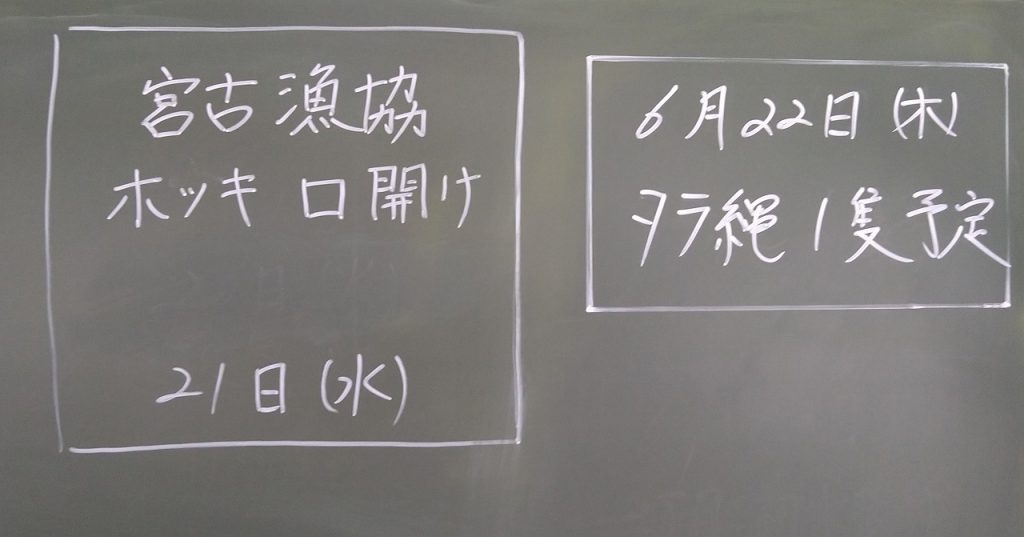 宮古漁協
ホッキ 口開け
21日(水)
6月22日(木)
タラ縄1隻予定